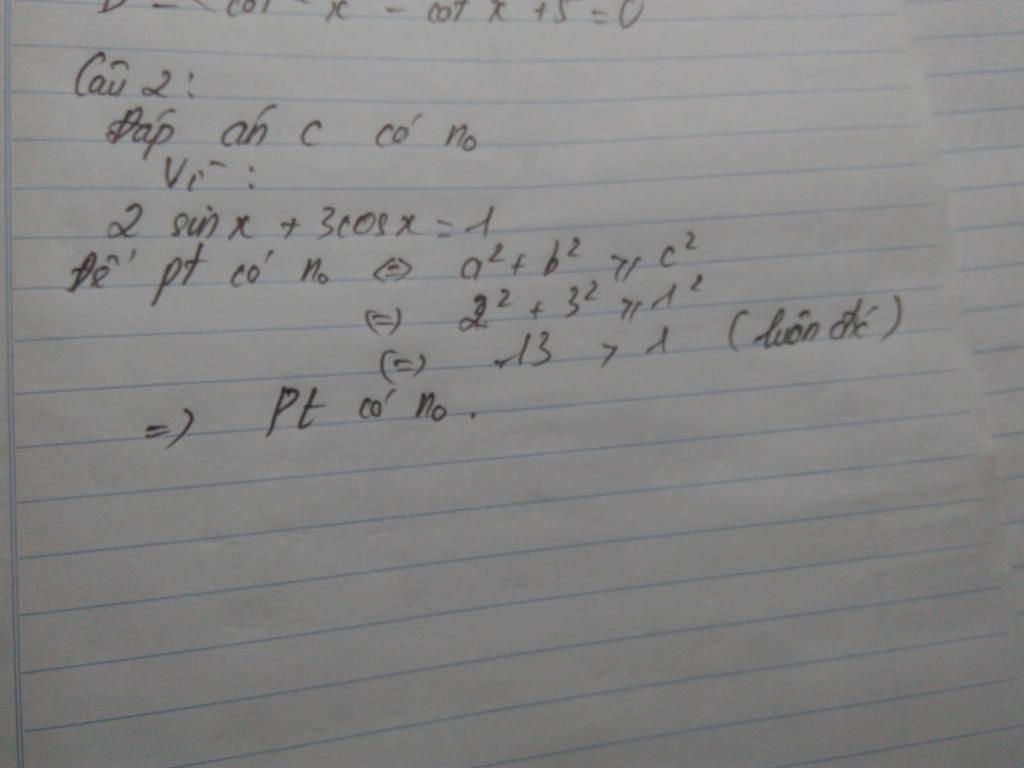 cot² x - cot x + 5 = 0
Câu 2:
Đáp án C có n₀
Vì:
2 sin x + 3cos x = 1
Để pt có n₀ ⇔ a² + b² ≥ c²
⇔ 2² + 3² ≥ 1²
⇔ 13 > 1 (luôn đúng)
=> Pt có n₀.